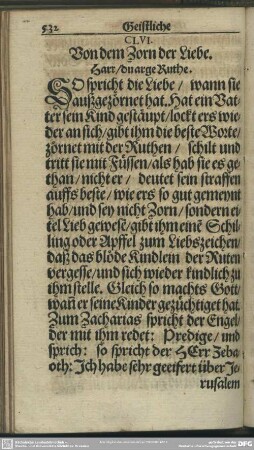 532 Geistliche
CLVI.
Von dem Zorn der Liebe.
Harr/ du arge Ruthe.
SO spricht die Liebe / wann sie
außgezörnet hat. Hat ein Vat-
ter sein Kind gestäupt/ lockt ers wie-
der an sich/ gibt ihm die beste Worte/
zörnet mit der Ruthen / schilt und
tritt sie mit Füssen/ als hab sie es ge-
than/ nicht er / deutet sein straffen
auffs beste/ wie ers so gut gemeynt
hab/ und sey nicht Zorn/ sondern ei-
tel Lieb gewesē/ gibt ihm einē Schil-
ling oder Apffel zum Liebszeichen/
daß das blöde Kindlein der Ruten
vergesse/ und sich wieder kindlich zu
ihm stelle. Gleich so machts Gott/
wañ er seine Kinder gezüchtiget hat.
Zum Zacharias spricht der Engel/
der mit ihm redet: Predige/ und
sprich: so spricht der HErr Zeba-
oth: Ich habe sehr geeifert über Je-
rusalem